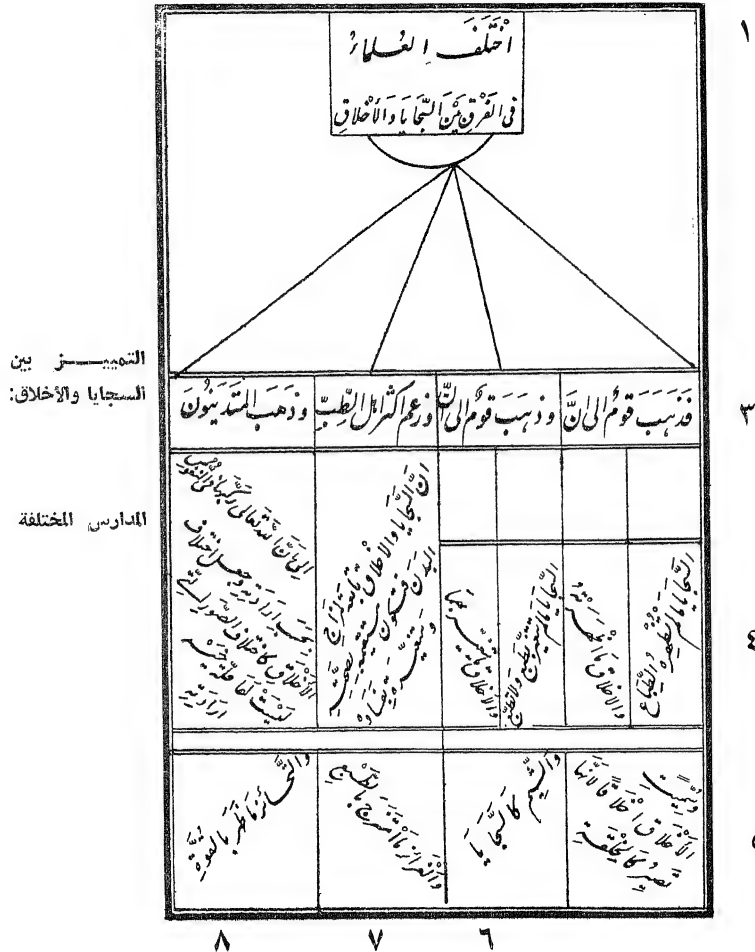 ١
اخْتَلَفَ العُلَمَاءُ
فِى الفَرْقِ بَيْنَ السَّجَايَا وَالأَخْلَاقِ
التمييز بين
السجايا والأخلاق:
المدارس المختلفة
٣
فَذَهَبَ قَوْمٌ الى انَّ
وذهَبَ قَوْمٌ الى انَّ
وزعم اكثر اهل الطِّبِّ
وذهَبَ المتَدَيِّنُونَ
٤
السَّجَايَا مالم يُظْهِرْهُ الطِّبَاعُ
والاخلاق ما اظهرَتْهُ
السَّجَايَا مالم يتغيّر بطبع ولا تطبّع
والاخلاق ما يتغيّر بهما
انّ السَّجَايَا والاخلاق تابعة لمزاج
البدن فتكون مستقيمة بصحّته
ومتغيّرة بفساده
الى بانّ الله تعالى ركّبها فى النفوس
بحسب ارادته وجعل اختلاف
الأخلاق كاختلاف الصّور التى
ليست لها علّة غير
ارادته
٥
وسُمِّيَتِ
الأَخْلَاق اخْلَاقًا لأَنَّهَا
تصيرُ كَالخِلْقَةِ
والشِّيَم كالسَّجَايَا
والْغَرَائِزُ مَا امتزج بالطَّبْعِ
وَالنَّحَائِزُ مَا ظَهَرَ بالقُوَّةِ
٦
٧
٨